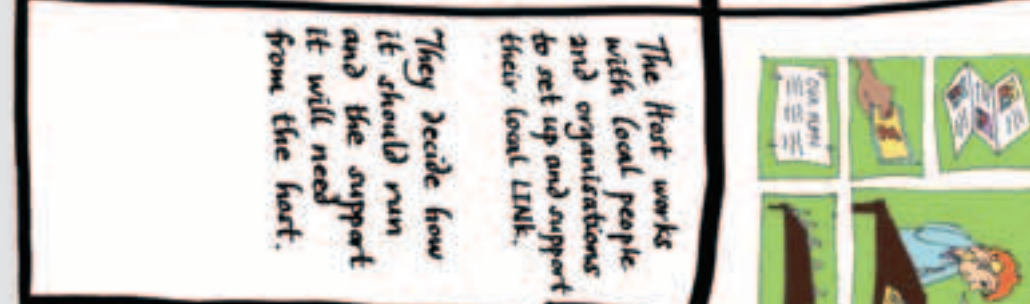 The Host works
with local people
and organisations
to set up and support
their local LINk.
They decide how
it should run
and the support
it will need
from the host.
OUR PLAN